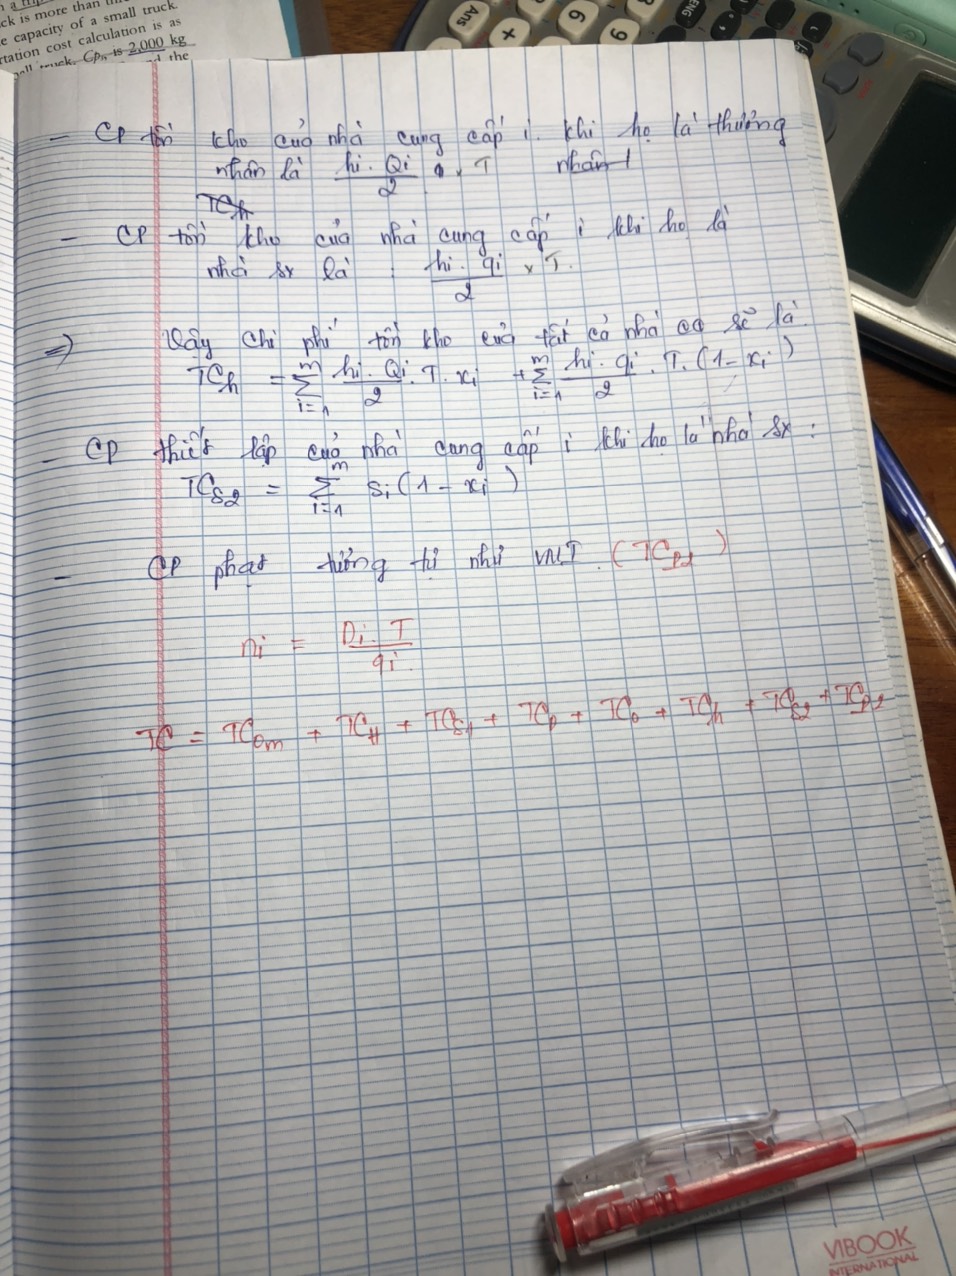 ck is more than
e capacity of a small truck.
rtation cost calculation is as
truck, Cp is 2,000 kg
the
Ans
+
6
9
ENG
- CP tồn kho của nhà cung cấp i khi họ là thương
nhân là hi. Qi / 2 . T nhân 1
TCh
- CP tồn kho của nhà cung cấp i khi họ là
nhà sx là hi. qi / 2 x T.
=> Vậy chi phí tồn kho của tất cả nhà cc sẽ là
TCh = m Σ i=1 hi. Qi / 2 . T. xi + m Σ i=1 hi. qi / 2 . T. (1 - xi)
- CP thiết lập của nhà cung cấp i khi họ là nhà sx :
TCs2 = m Σ i=1 Si (1 - xi)
- CP phạt tương tự như VMI. (TCp2)
ni = Di. T / qi.
TC = TCom + TCH + TCS1 + TCp + TCo + TCh + TCs2 + TCp2
VIBOOK
INTERNATIONAL